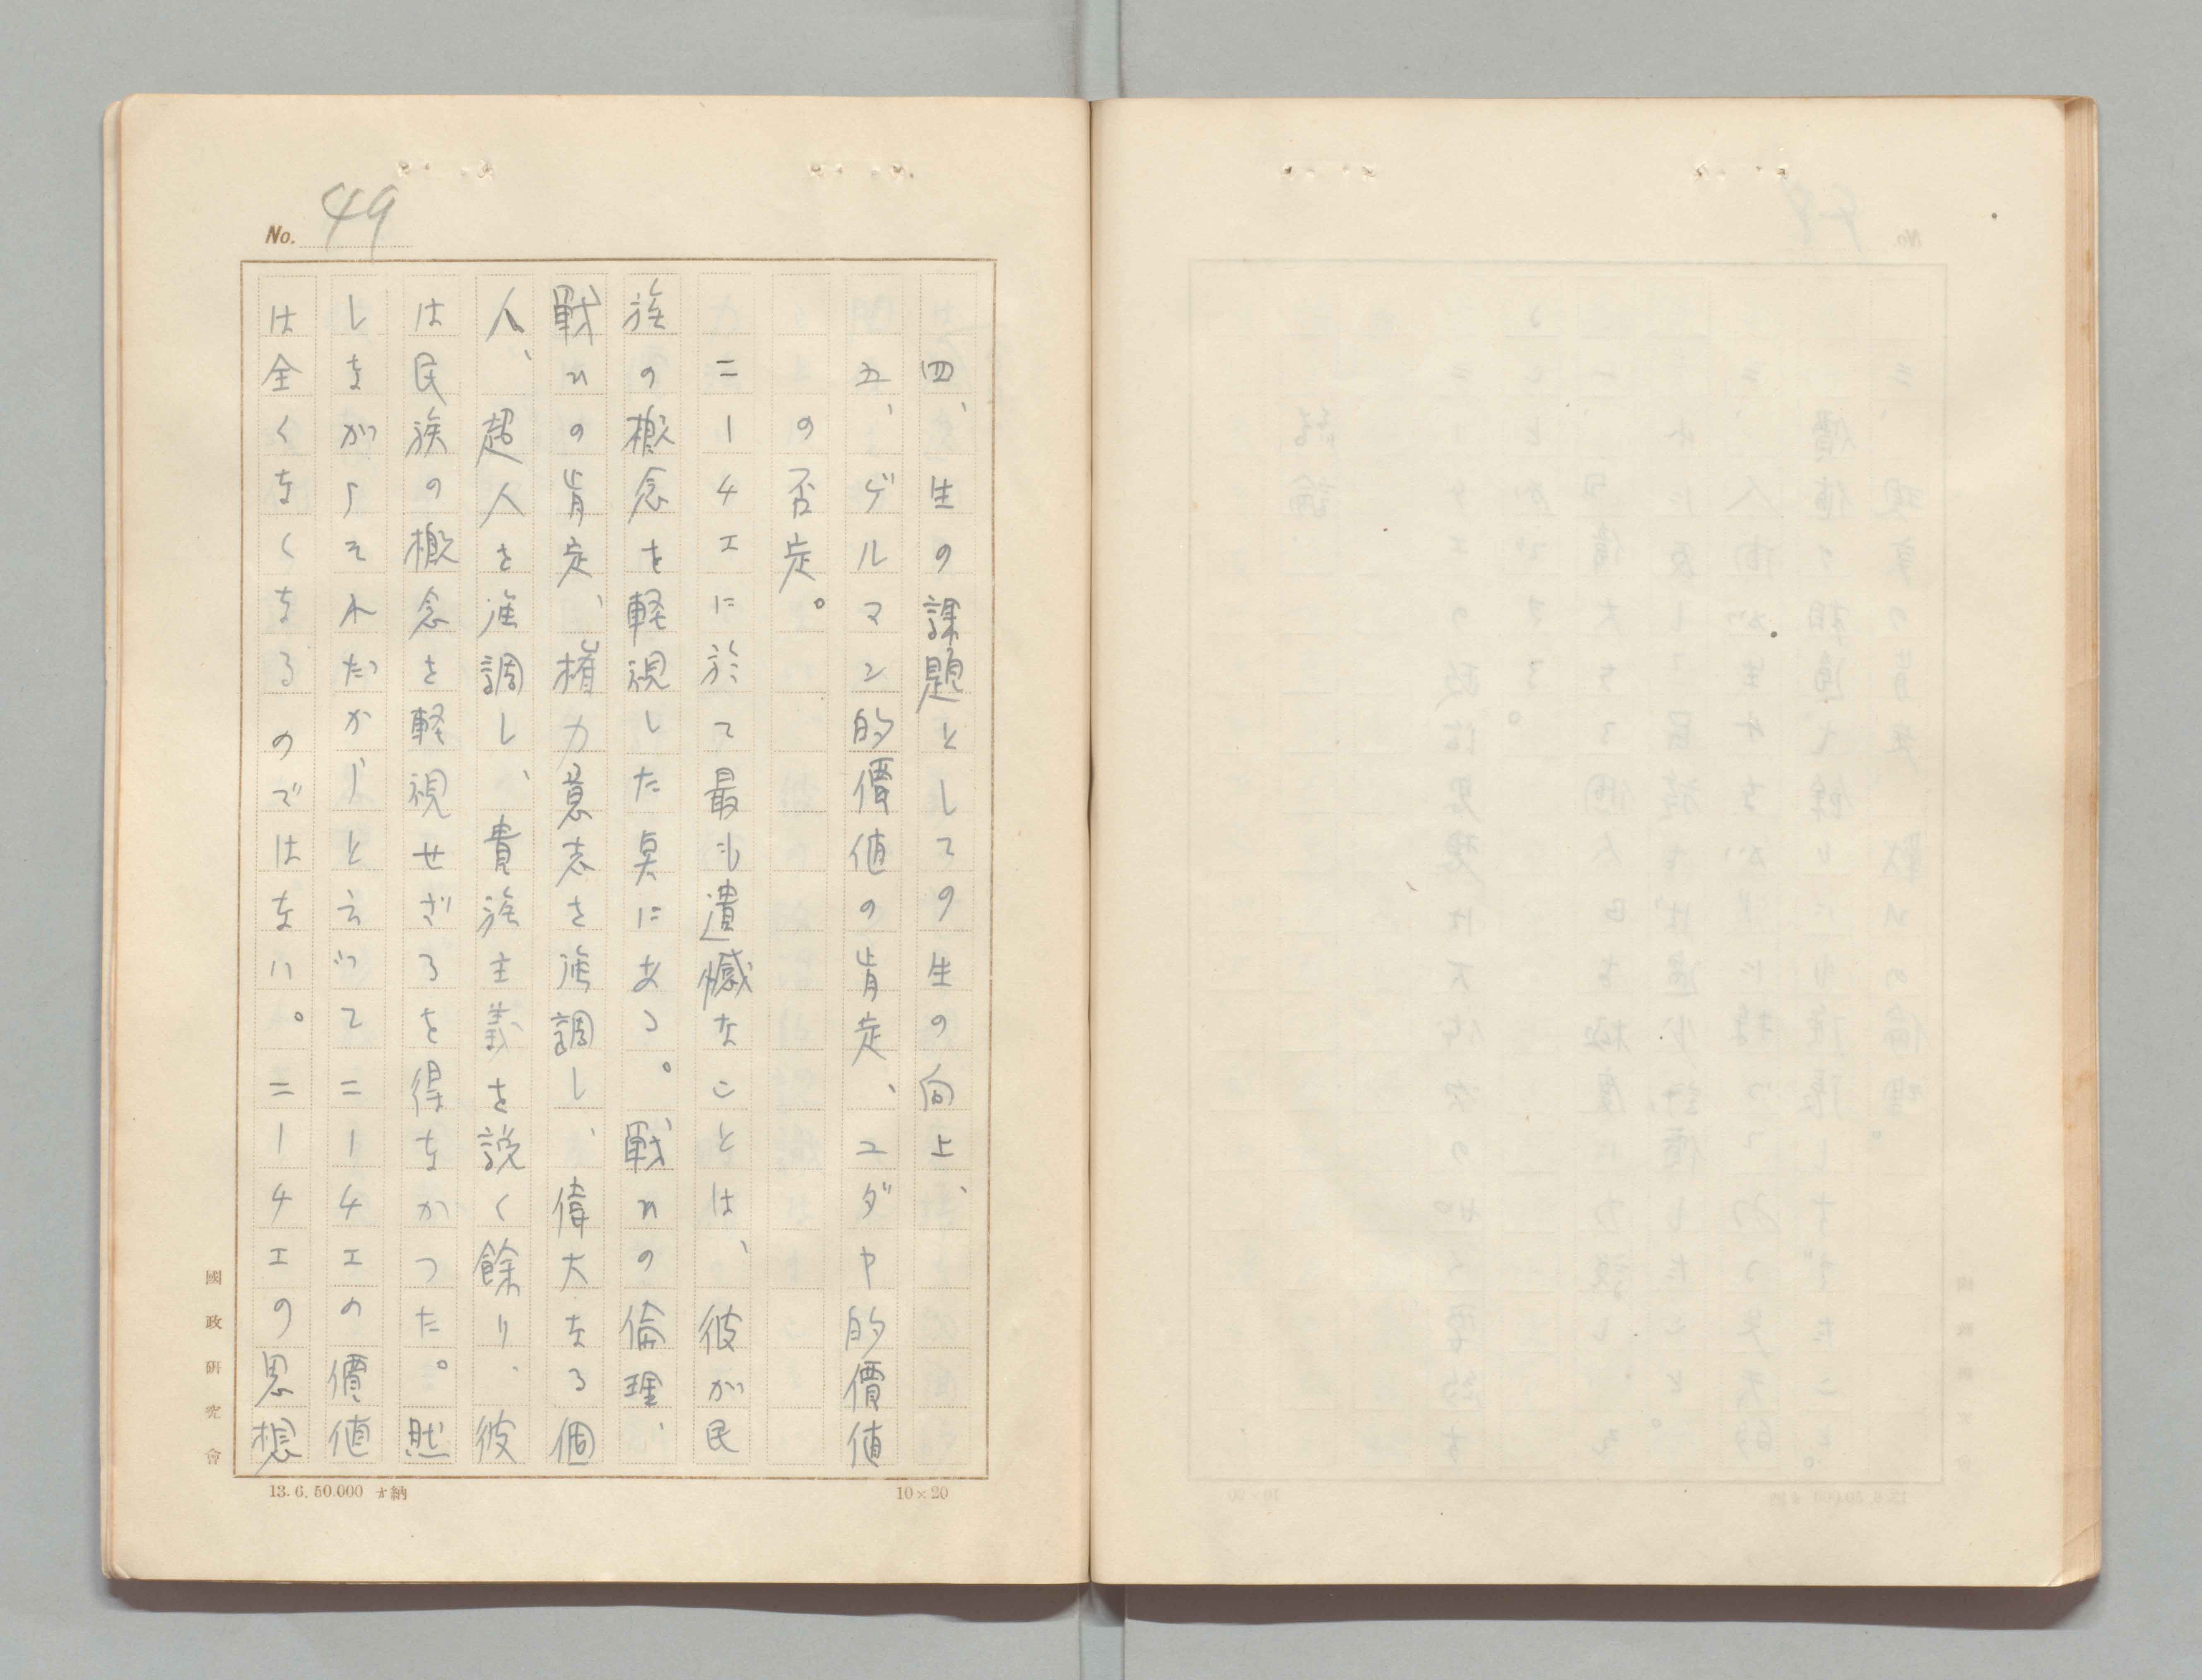 No. 49
四、生の課題としての生の向上、
五、ゲルマン的價値の肯定、ユダヤ的價値
の否定。
ニーチエに於て最も遺憾なことは、彼が民
族の概念を軽視した点にある。戦いの倫理、
戦いの肯定、権力意志を強調し、偉大なる個
人、超人を強調し、貴族主義を説く餘り、彼
は民族の概念を軽視せざるを得なかつた。然
しながらそれだからと言つてニーチエの價値
は全くなくなるのではない。ニーチエの思想
國政研究會
13.6.50.000 納
10×20